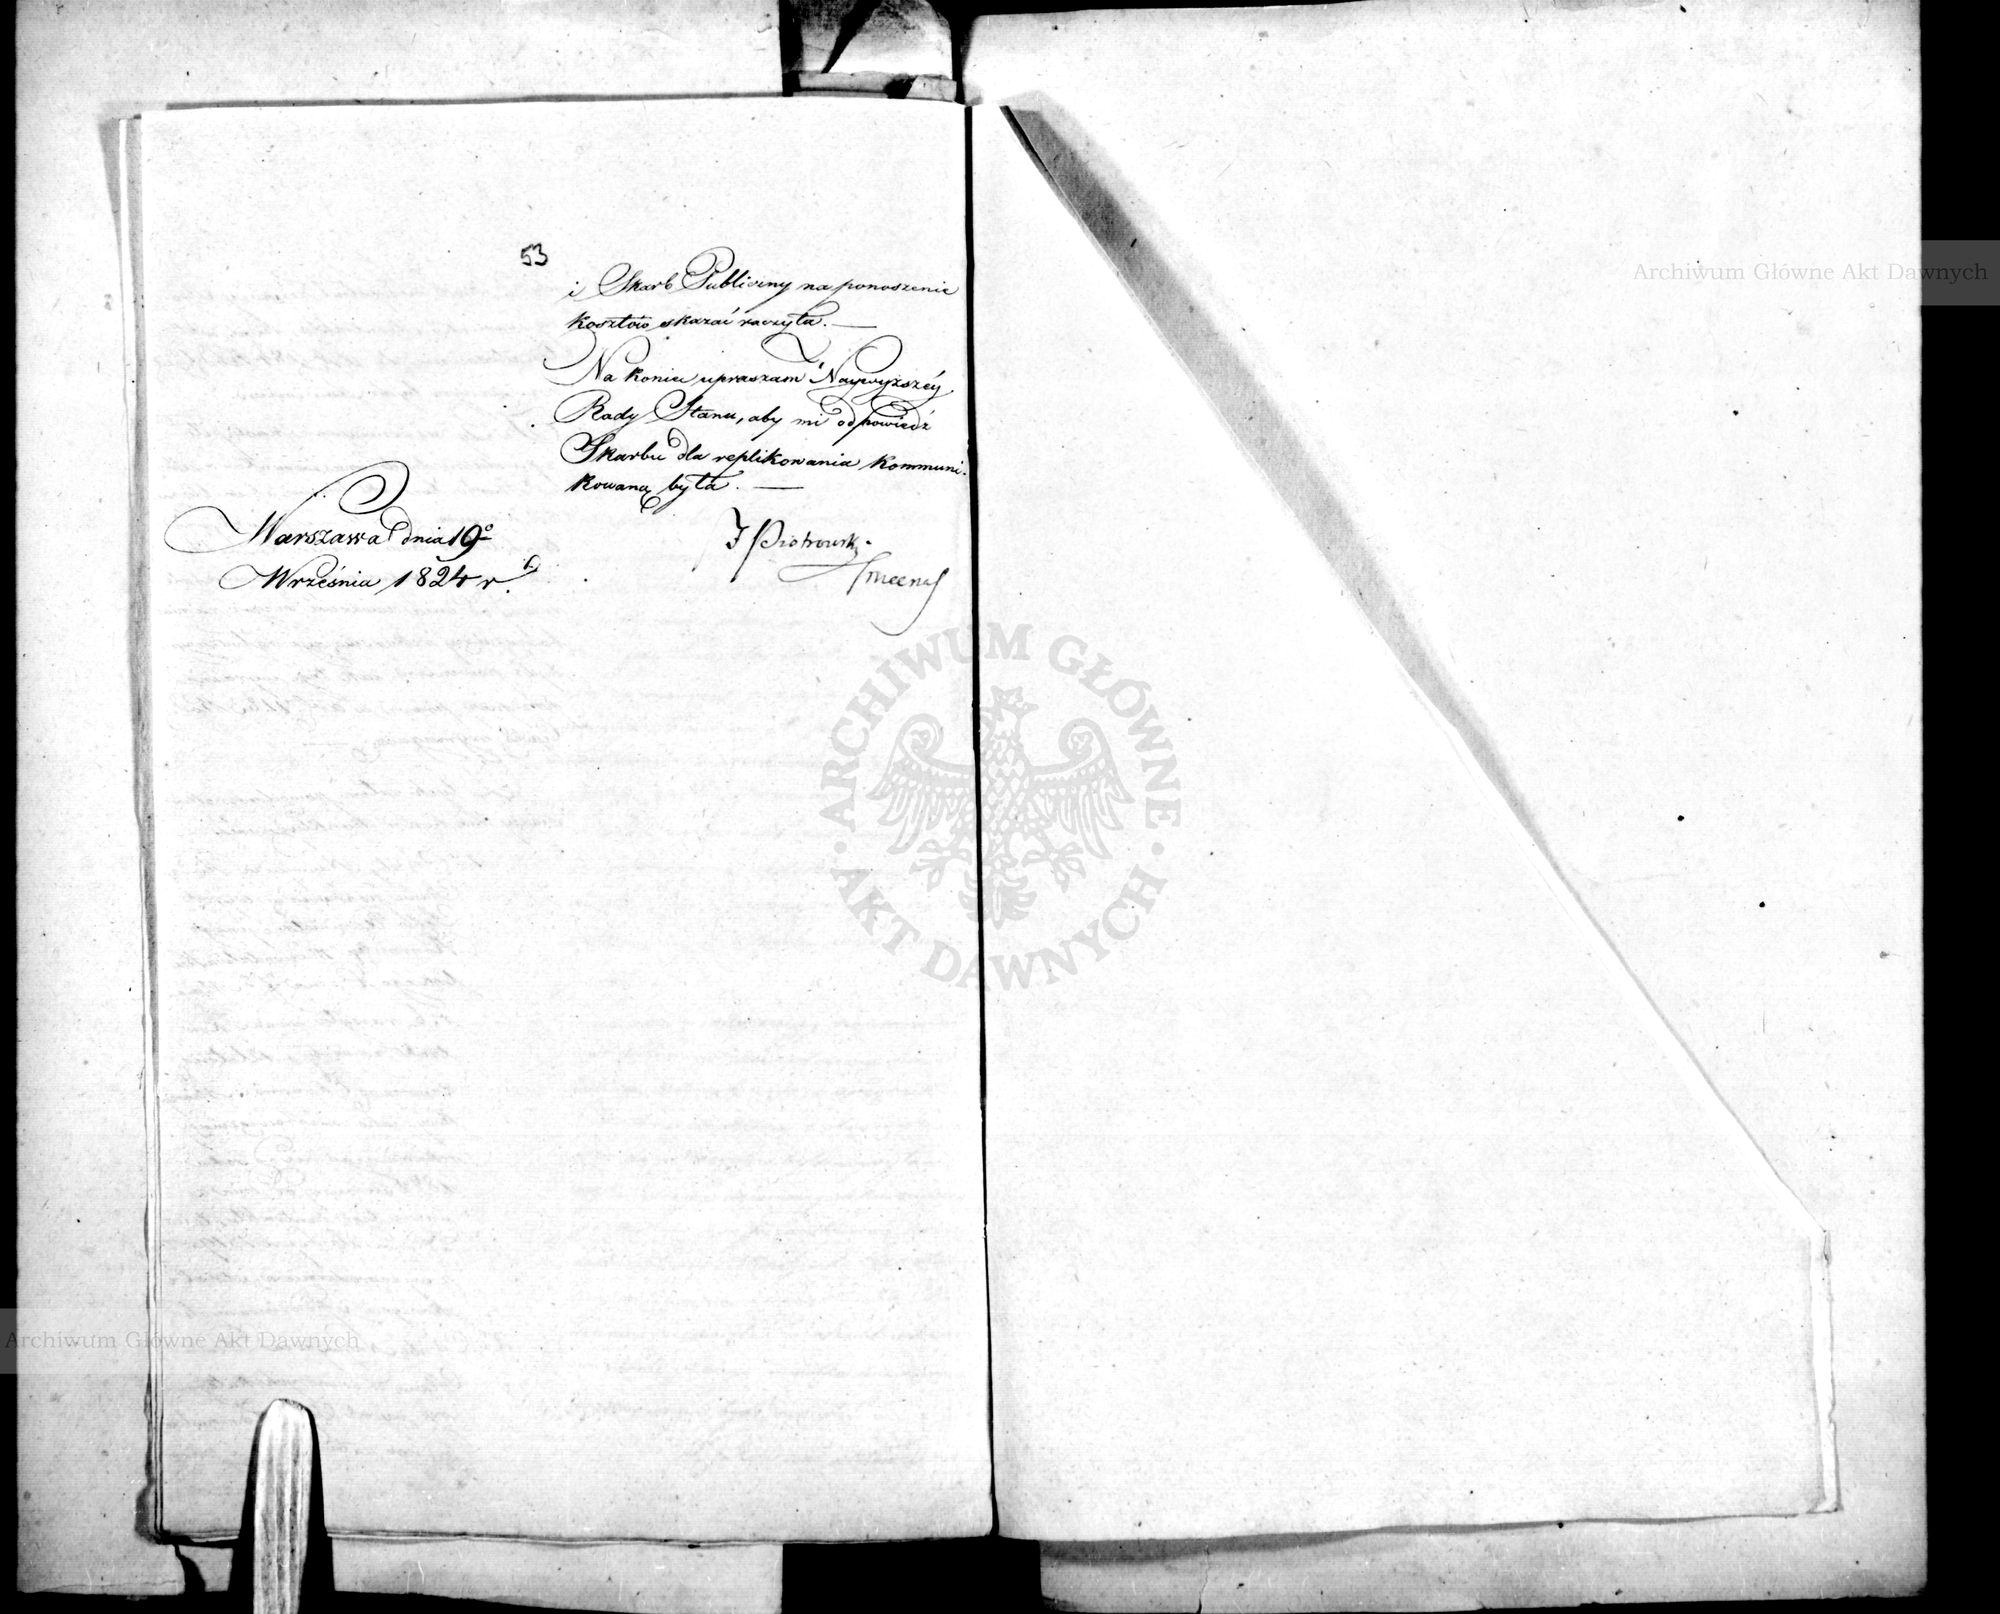 53
i Skarb Publiczny na ponoszenie
kosztów skazać raczyła. —
Na koniec upraszam Naywyższéy
Rady Stanu, aby mi odpowiedź
Skarbu dla replikowania kommuni-
kowaną była. —
Warszawa dnia 19º
Września 1824 r.
J Piotrowski
Archiwum Główne Akt Dawnych
ARCHIWUM GŁÓWNE · AKT DAWNYCH ·
Archiwum Główne Akt Dawnych